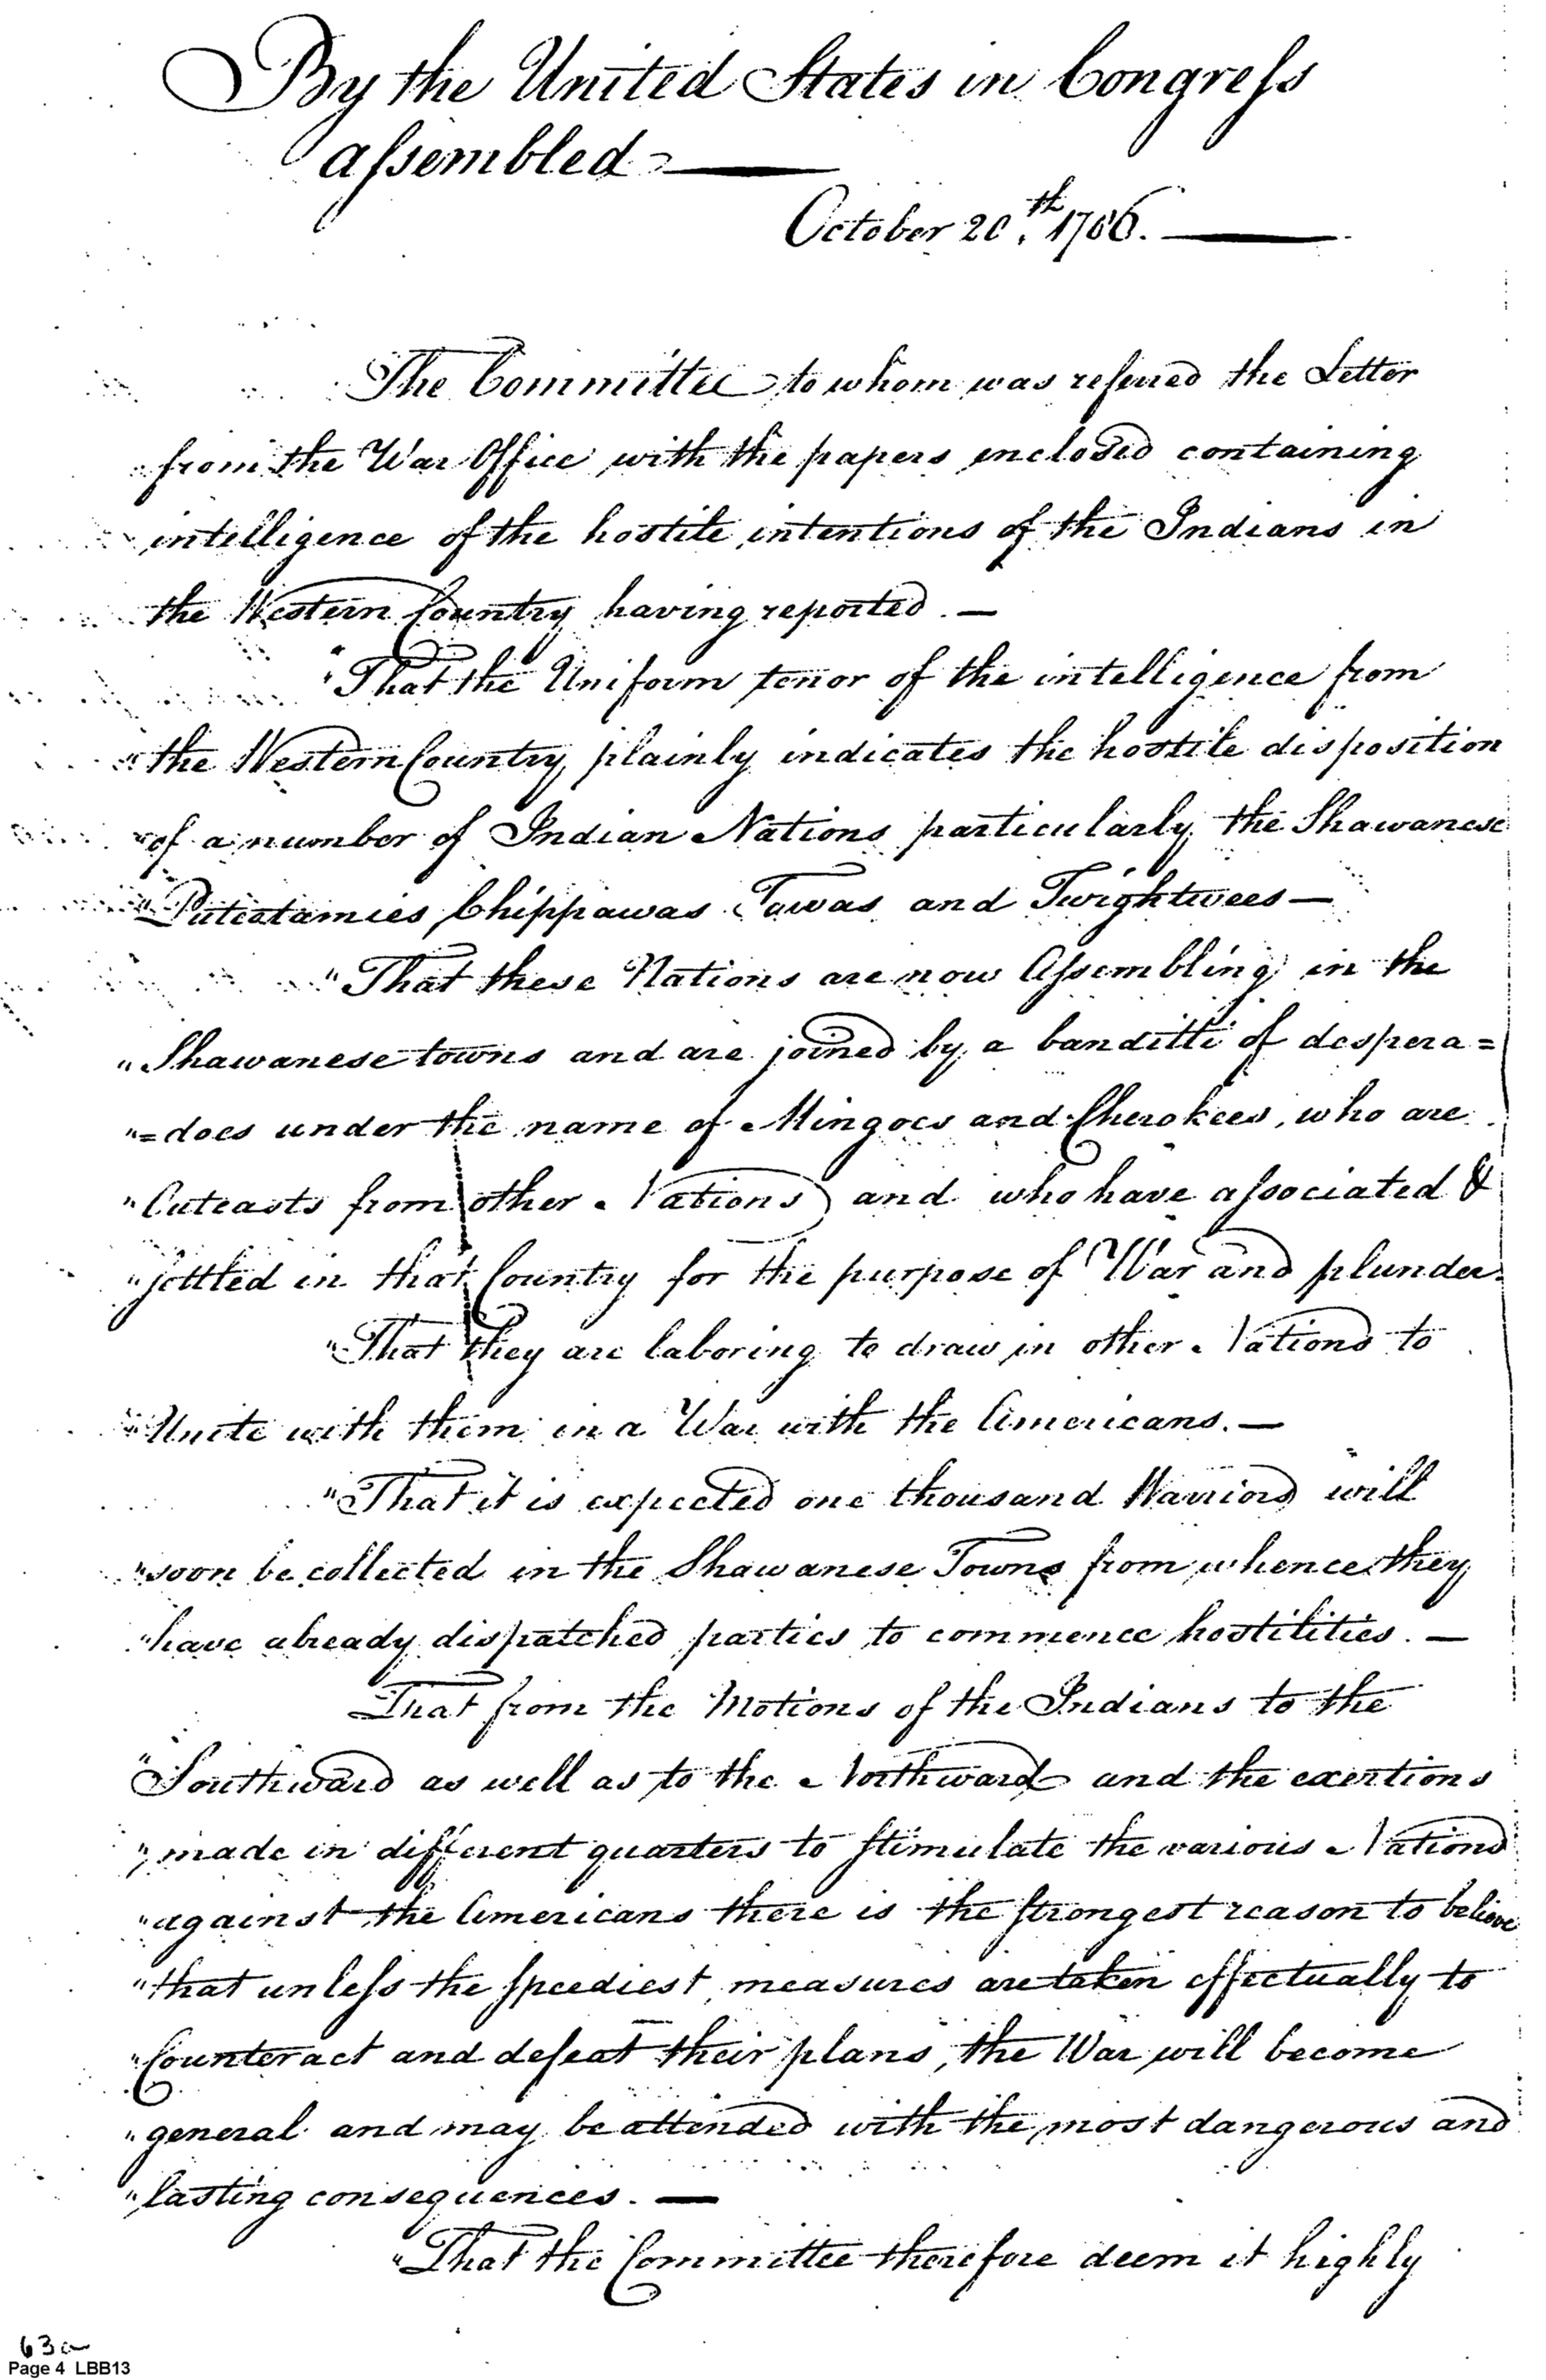 By the United States in Congress
assembled
October 20.th 1786.
The Committee to whom was referred the Letter
from the War Office with the papers enclosed containing
intelligence of the hostile intentions of the Indians in
the Western Country having reported. —
"That the Uniform tenor of the intelligence from
"the Western Country plainly indicates the hostile disposition
"of a number of Indian Nations particularly the Shawanese
"Puteotamies Chippawas Tawas and Twightwees —
"That these Nations are now Assembling in the
"Shawanese towns and are joined by a banditti of despera=
"=does under the name of Mingoes and Cherokees, who are
"Outcasts from other Nations and who have associated &
"settled in that Country for the purpose of War and plunder.
"That they are laboring to draw in other Nations to
"Unite with them in a War with the Americans. —
"That it is expected one thousand Warriors will
"soon be collected in the Shawanese Towns from whence they
"have already dispatched parties to commence hostilities. —
That from the Motions of the Indians to the
"Southward as well as to the Northward and the exertions
"made in different quarters to stimulate the various Nations
"against the Americans there is the strongest reason to believe
"that unless the speediest measures are taken effectually to
"Counteract and defeat their plans, the War will become
"general and may be attended with the most dangerous and
"lasting consequences. —
"That the Committee therefore deem it highly
63a
Page 4 LBB13